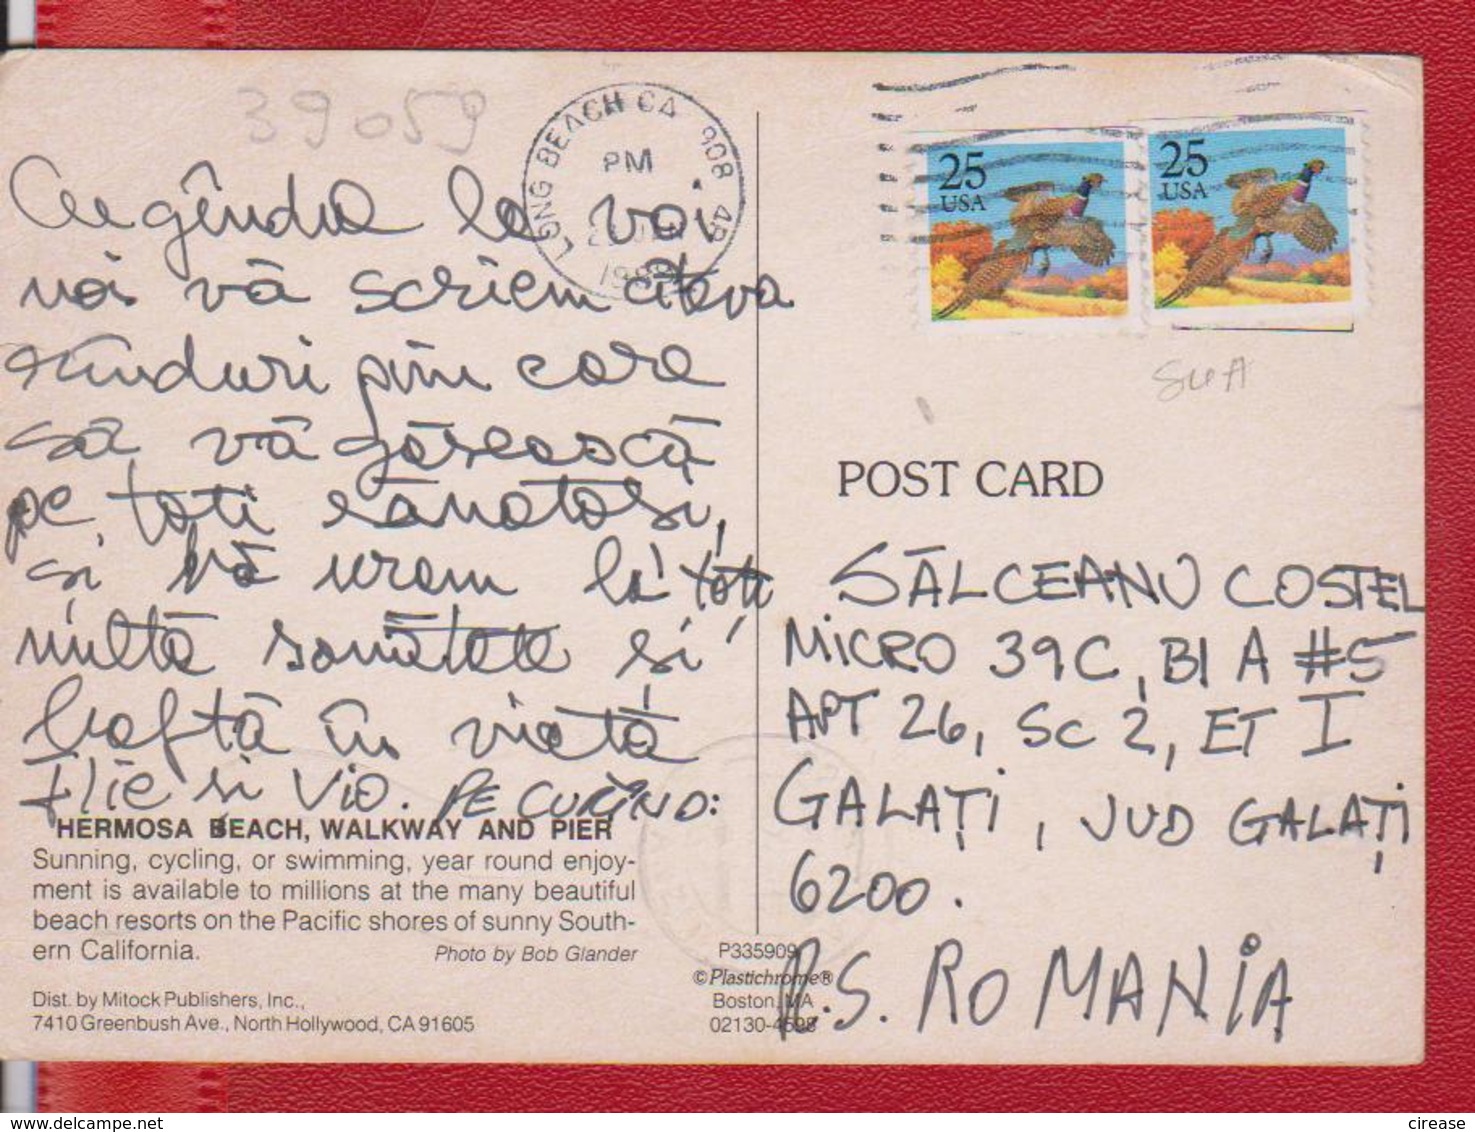 39059
Cu gîndul la voi
noi vă scriem cîteva
rînduri prin care
să vă găsească
pe toți sănătoși,
și vă urăm la toți
multă sănătate și
baftă în viață
Ilie și Vio. PE CURÎND:
HERMOSA BEACH, WALKWAY AND PIER
Sunning, cycling, or swimming, year round enjoy-
ment is available to millions at the many beautiful
beach resorts on the Pacific shores of sunny South-
ern California.
Photo by Bob Glander
Dist. by Mitock Publishers, Inc.,
7410 Greenbush Ave., North Hollywood, CA 91605
LONG BEACH CA 908 4B
PM
P335909
©Plastichrome®
Boston, MA
02130-4598
25
USA
25
USA
SUA
POST CARD
SĂLCEANU COSTEL
MICRO 39C, Bl A #5
APT 26, SC 2, ET I
GALAȚI, JUD GALAȚI
6200.
R.S. ROMANIA
delcampe.net
cirease